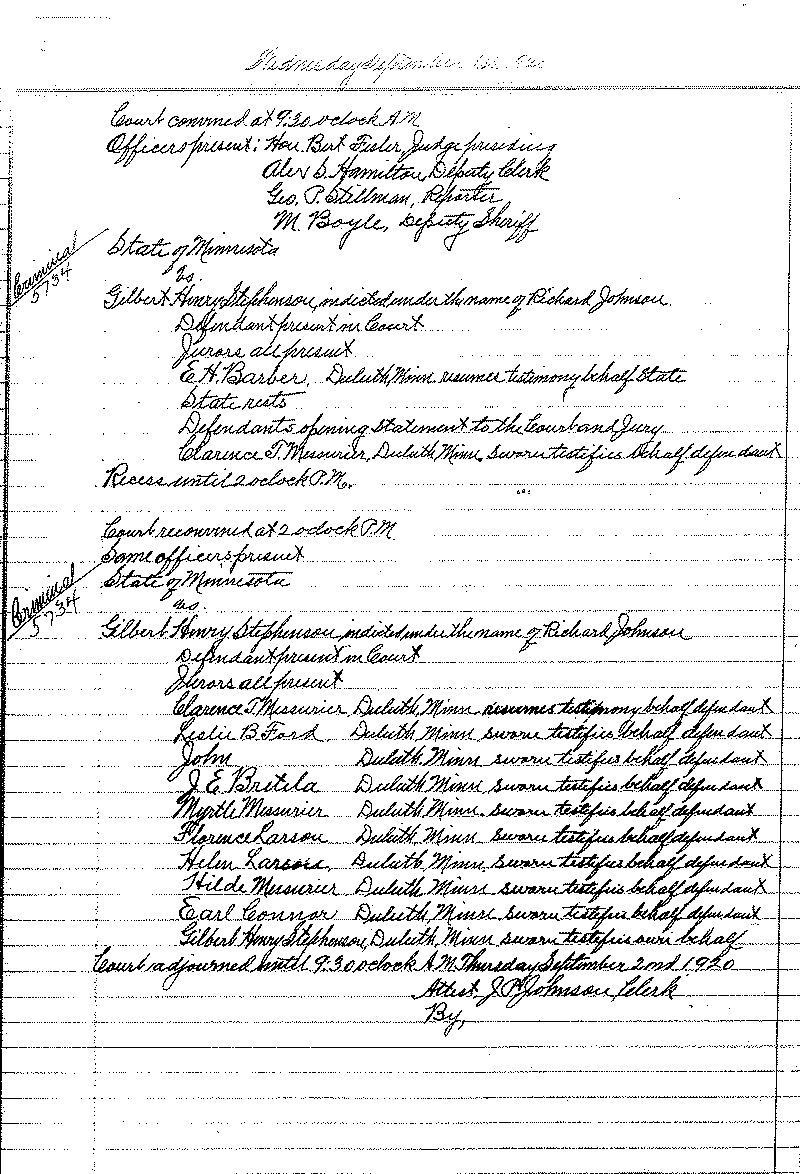 Wednesday September 1st 1920
Court convened at 9:30 oclock A.M.
Officers present: Hon. Bert Fesler, Judge presiding
Alex S. Hamilton, Deputy Clerk
Geo. P. Stillman, Reporter
M. Boyle, Deputy Sheriff
State of Minnesota
Criminal
5734
vs.
Gilbert Henry Stephenson, indicted under the name of Richard Johnson
Defendant present in Court
Jurors all present
E.H. Barber, Duluth, Minn. resumes testimony behalf State
State rests
Defendants opening statement to the Court and Jury
Clarence T. Messurier, Duluth Minn. sworn testifies behalf defendant
Recess until 2 oclock P.M.
Court reconvened at 2 oclock P.M
Same officers present
State of Minnesota
Criminal
5734
vs.
Gilbert Henry Stephenson, indicted under the name of Richard Johnson
Defendant present in Court
Jurors all present
Clarence T Messurier Duluth, Minn resumes testimony behalf defendant
Leslie B Ford Duluth Minn sworn testifies behalf defendant
John Duluth Minn sworn testifies behalf defendant
J.E. Duluth Minn sworn testifies behalf defendant
Myrtle Messurier Duluth Minn. sworn testifies behalf defendant
Florence Larson Duluth Minn sworn testifies behalf defendant
Helen Larson, Duluth Minn, sworn testifies behalf defendant
Hilda Messurier Duluth Minn sworn testifies behalf defendant
Earl Connor Duluth, Minn sworn testifies behalf defendant
Gilbert Henry Stephenson, Duluth, Minn sworn testifies own behalf
Court adjourned until 9:30 oclock A.M. Thursday September 2nd 1920
Attest J.P. Johnson, Clerk
By,